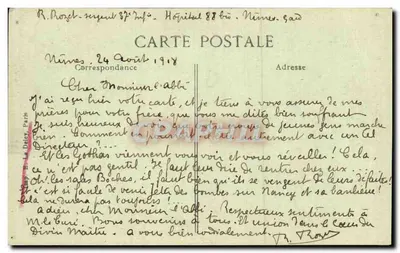 R. Rozet - sergent 37e Inf. Hôpital 88 bis - Nîmes - Gard
CARTE POSTALE
Correspondance
Adresse
Nîmes, 24 Août 1918
Cher Monsieur l'abbé
J'ai reçu hier votre carte, et je tiens à vous assurer de mes
prières pour votre frère que vous me dites bien souffrant
Je suis heureux de que de jeunes gens marche
bien. Comment avec un tel
Directeur ?...
Et les Gothas viennent vous voir et vous réveiller ! Cela,
ce n'est pas gentil. Il faut leur dire de rentrer chez eux...
Oh ! les sales Boches, il faut bien qu'ils se vengent de leurs défaites
c'est si facile de venir jeter des bombes sur Nancy et sa banlieue !
Cela ne durera pas toujours !
Adieu, cher Monsieur l'abbé. Respectueux sentiments à
M. le curé. Bons souvenirs à tous. Et union dans le Cœur du
Divin Maître. à vous bien cordialement.
R. Rozet